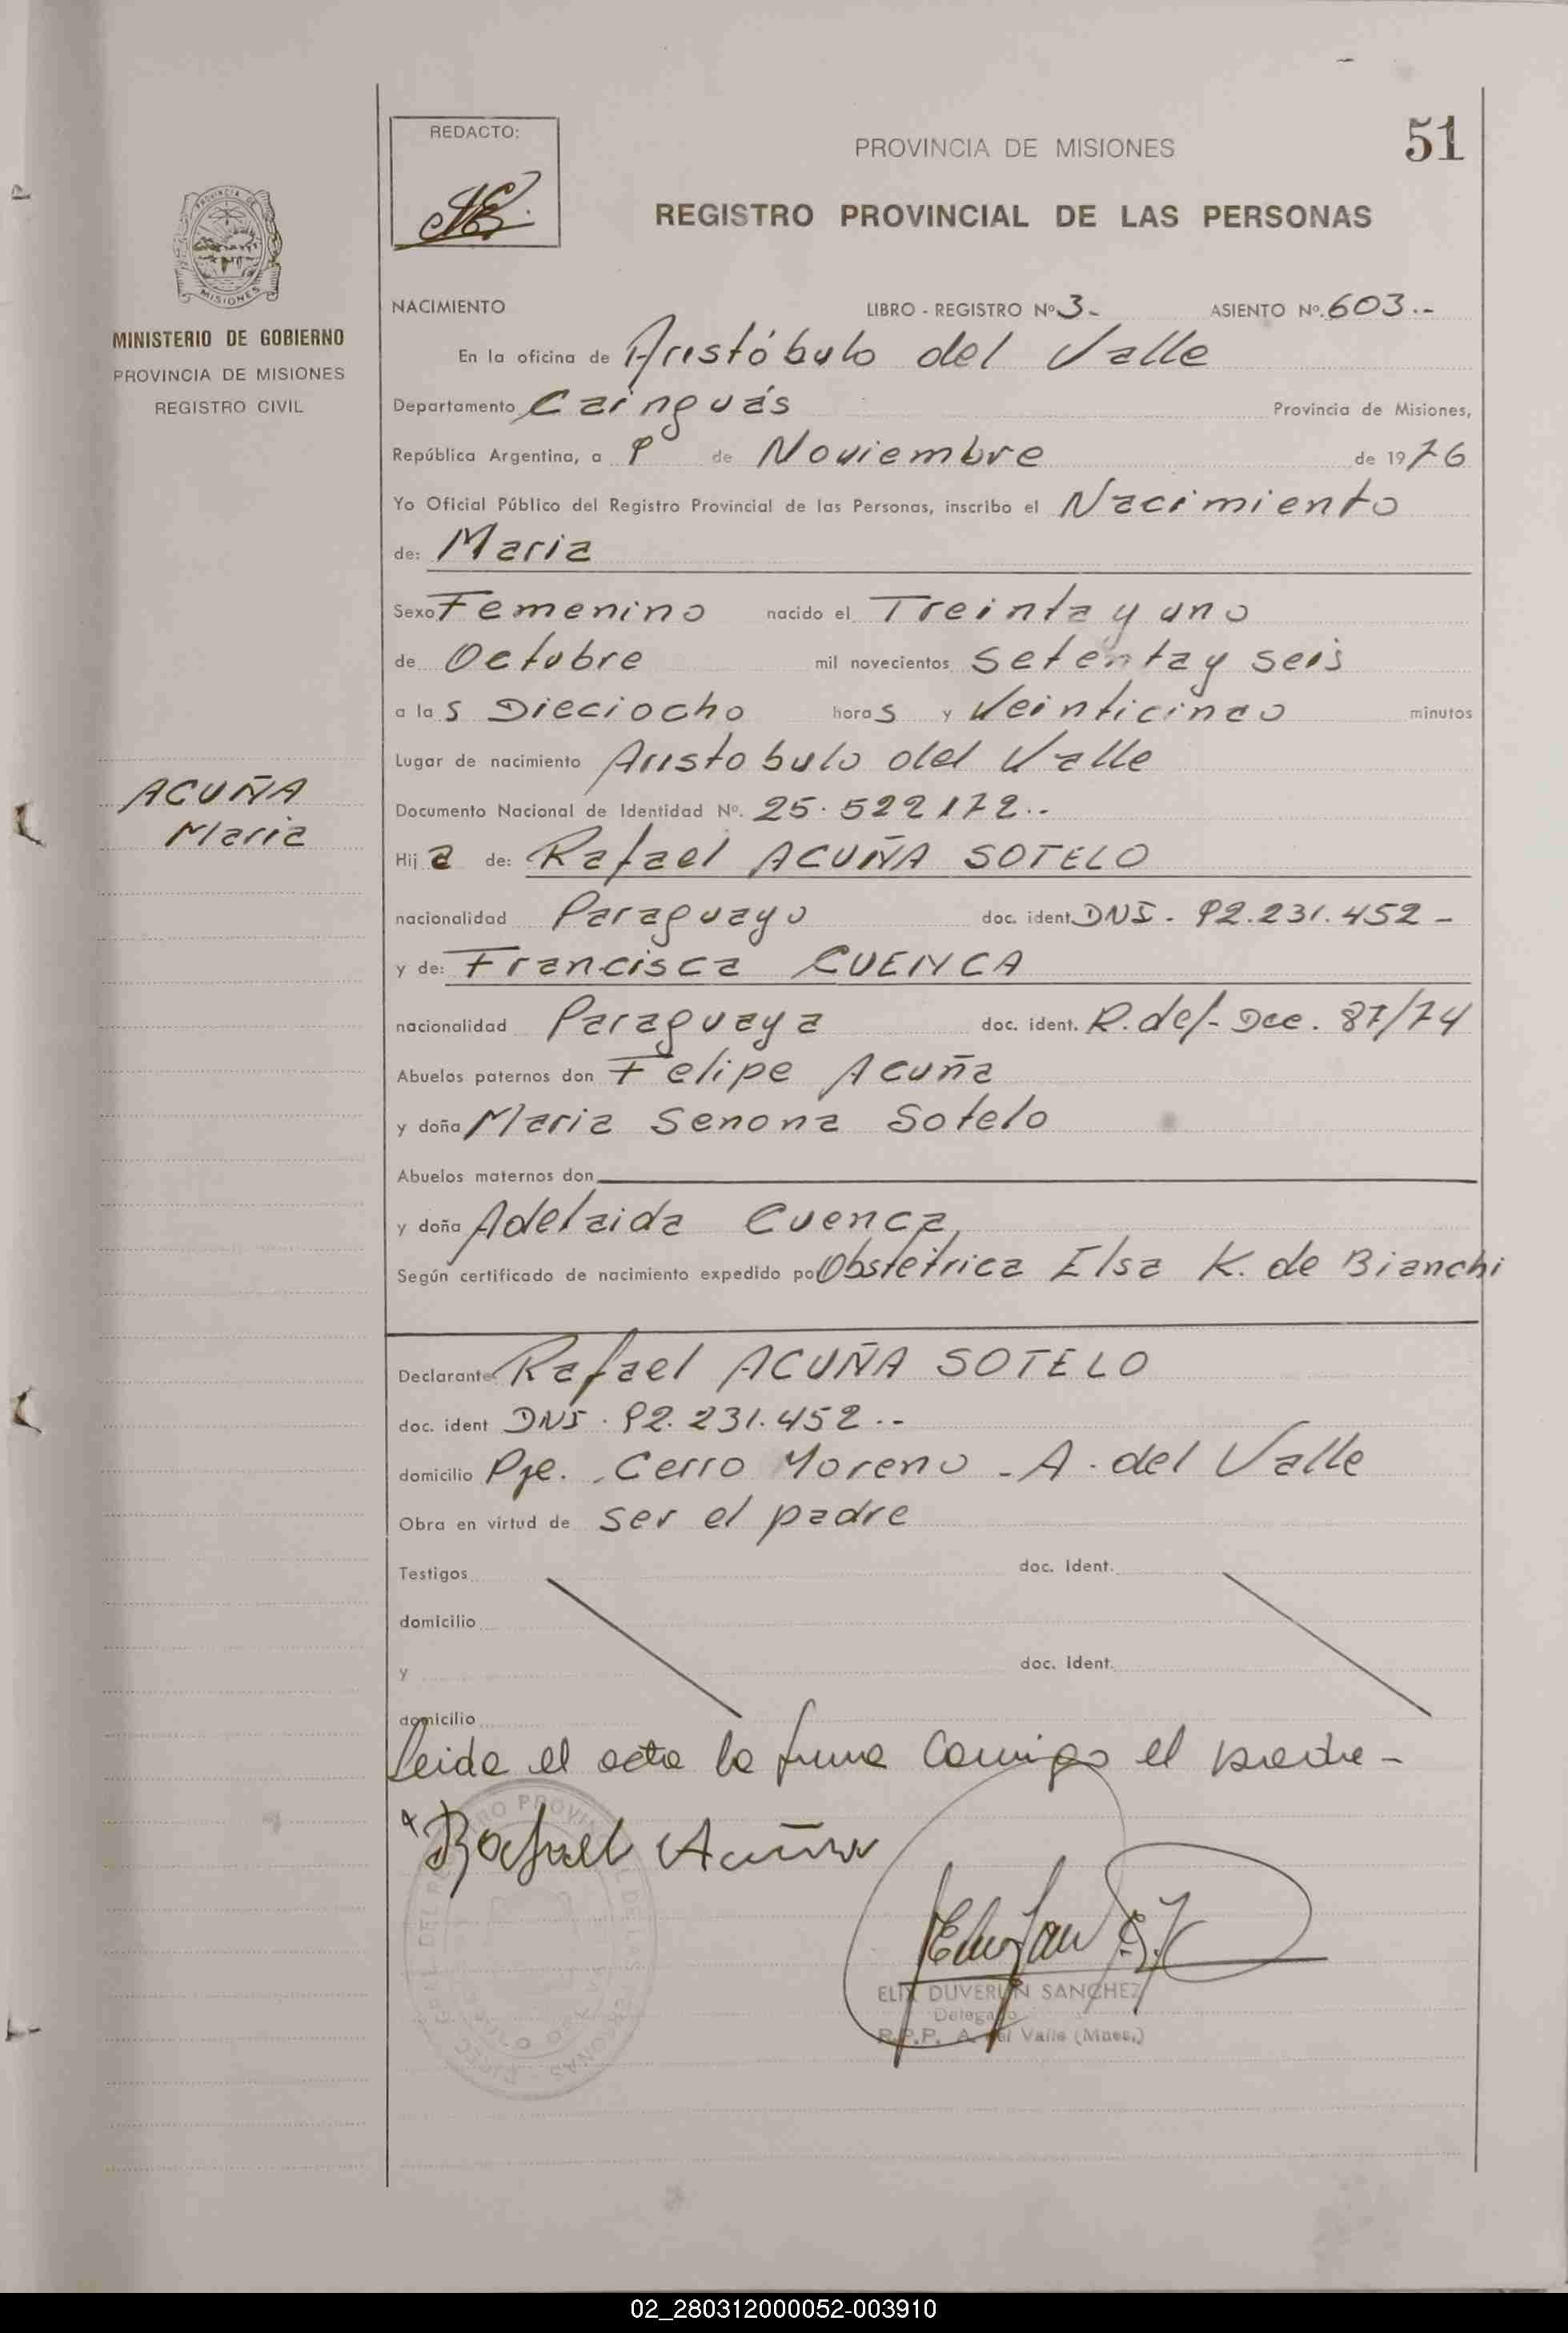 51
REDACTO:
PROVINCIA DE MISIONES
REGISTRO PROVINCIAL DE LAS PERSONAS
MISIONES
MINISTERIO DE GOBIERNO
PROVINCIA DE MISIONES
REGISTRO CIVIL
NACIMIENTO LIBRO - REGISTRO Nº 3- ASIENTO Nº. 603.--
En la oficina de Aristóbulo del Valle
Departamento Cainguás Provincia de Misiones,
República Argentina, a de Noviembre de 1976
Yo Oficial Público del Registro Provincial de las Personas, inscribo el Nacimiento
de: Maria
Sexo Femenino nacido el Treinta y uno
de Octubre mil novecientos setenta y seis
a las Dieciocho horas y Veinticinco minutos
Lugar de nacimiento Aristobulo del Valle
ACUÑA
Maria
Documento Nacional de Identidad Nº. 25.522172.--
Hija de: Rafael ACUÑA SOTELO
nacionalidad Paraguayo doc. ident. DNI - 92.231.452 -
y de: Francisca CUENCA
nacionalidad Paraguaya doc. ident. R. def- Dec. 87/74
Abuelos paternos don Felipe Acuña
y doña Maria Senona Sotelo
Abuelos maternos don
y doña Adelaida Cuenca
Según certificado de nacimiento expedido por Obstétrica Elsa K. de Bianchi
Declarante Rafael ACUÑA SOTELO
doc. ident DNI. 92.231.452.--
domicilio Pje. Cerro Moreno - A. del Valle
Obra en virtud de ser el padre
Testigos doc. Ident.
domicilio
y doc. Ident.
domicilio
Leida el acta la firma Conmigo el padre -
Rafael Acuña
ELIX DUVERLIN SANCHEZ
Delegado
R.P.P. A. del Valle (Mnes.)
02_280312000052-003910